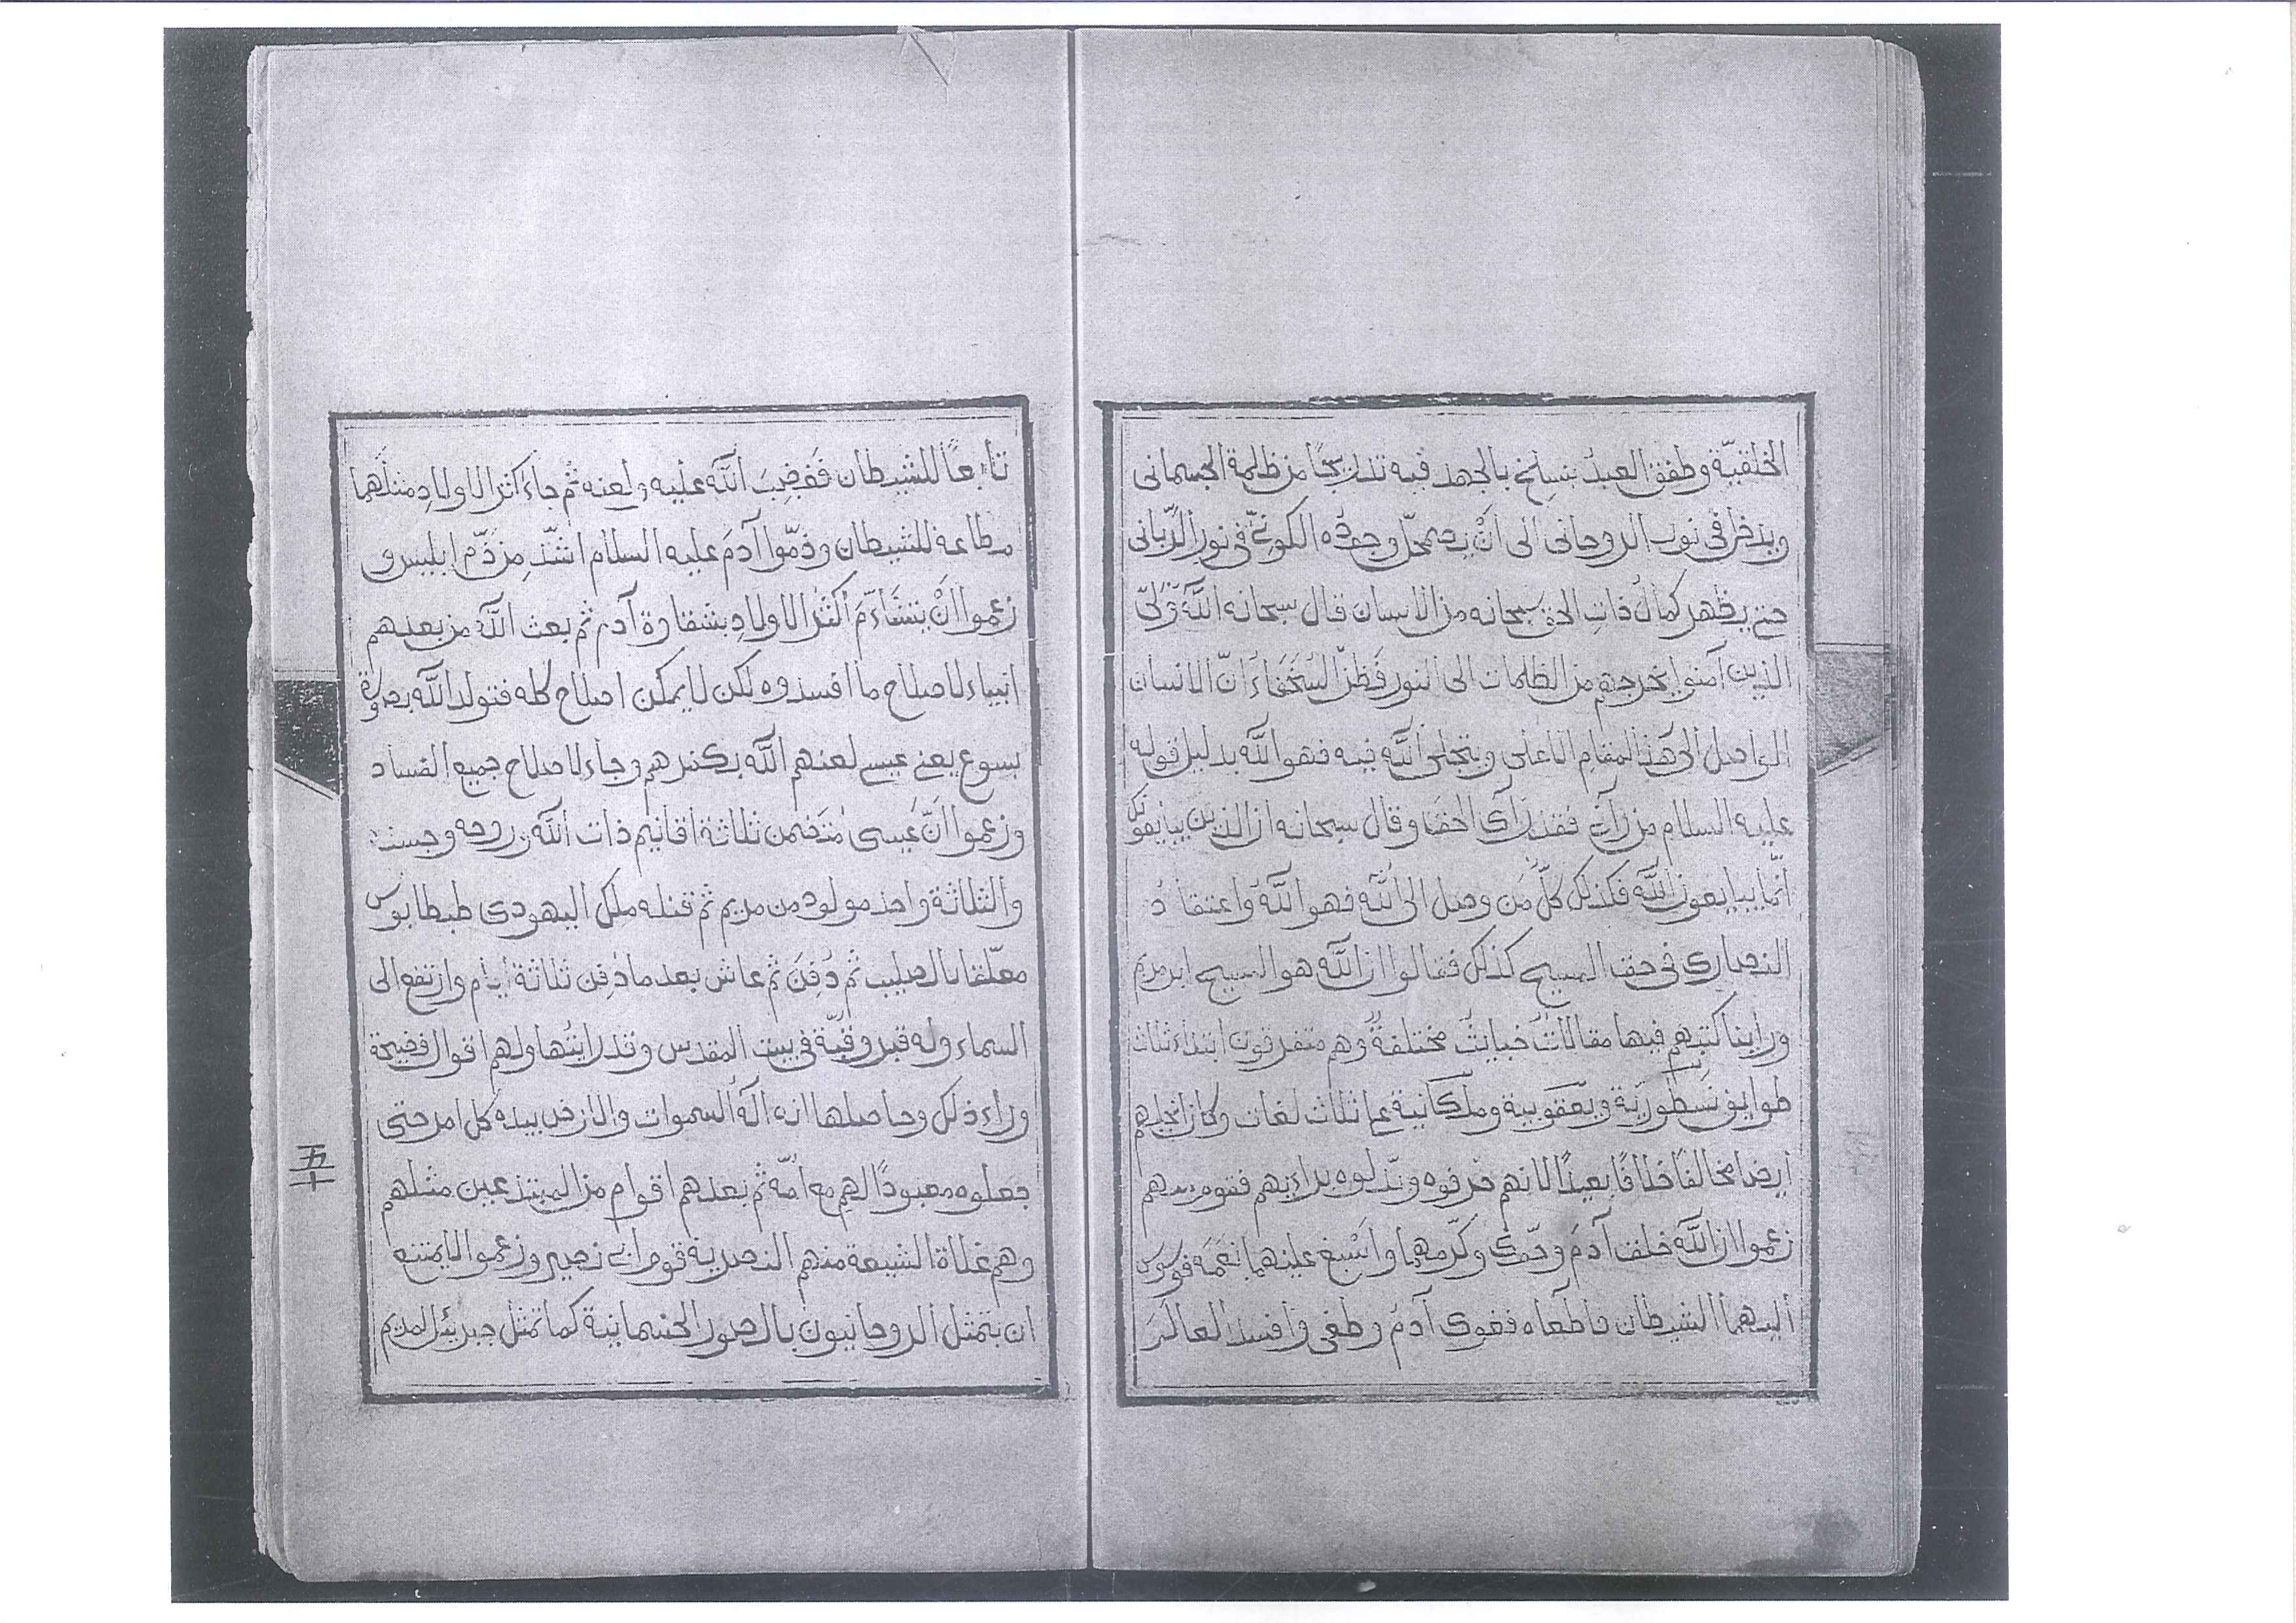 الخلقيّة وطفق العبدُ ينسلخ بالجهد فيه تدريجًا من ظلمة الجسمانى
ويدخل فى نور الروحانى الى أنْ يضمحلّ وجودُه الكونىّ فى نور الرّبانى
حتى يظهر كمالُ ذاتِ الحق سبحانه من الانسان قال سبحانه اللّٰه وَلىّ
الذين آمنوا يخرجهم من الظلمات الى النور فظنّ السُخَفَاءُ انّ الانسان
الواصل الى هذا المقام الاعلى ويتجلى اللّٰه فيه فهو اللّٰه بدليل قوله
عليه السلام من رآنى فقد رَأى الحقّا وقال سبحانه ان الذين يبايعونك
انّما يبايعون اللّٰه فكذلك كلّ مَن وصل الى اللّٰه فهو اللّٰه واعتقادُ
النصارى فى حق المسيح كذلك فقالوا ان اللّٰه هو المسيح ابن مريم
وراينا كتبهم فيها مقالاتٌ خبايثُ مختلفةٌ وهم متفرقون ابتداء ثلاث
طوايف نَسطورَيّة ويَعقوبية وملكانية على ثلاث لغات وكان انجيلهم
أيضا مخالفًا خلافًا بعيدًا لانهم حَرفوه وبَدلوه براءيهم فقوم منهم
زعموا ان اللّٰه خلق آدمَ وحوّى وكرّمهما واَسْبغَ عليهما نعَمَه فوسوس
أليهما الشيطان فاطعاه فغوى آدمُ وطغى وأفسد العالَمَ
تابعًا للشيطان فَغضِبَ أللّٰه عليه ولعنه ثم جاءَ اكثر الاولادِ مثلَهما
مطاعة للشيطان وذمّوا آدمَ عليه السلام اشدّ مِن ذمّ ابليس و
زعموا اَنْ يتشاءَمَ أكثرُ الاولادِ بشقاوة آدم ثم بعث اللّٰه من بعدهم
انبياء لاصلاح ما افسدوه لكن لا يمكن اصلاح كله فتولد اللّٰه بصورة
يسوع يعنى عيسى لعنهم اللّٰه بكفرهم وجاء لاصلاح جميع الفساد
وزعموا انّ عيسى مُتضَمن ثلاثة اقانيم ذات أللّٰه وروحه وجسده
والثلاثة واحد مولود من مريم ثم قتله ملك اليهودى طيطايوس
معلّقا بالصليب ثم دُفِنَ ثم عاش بعد ما دُفِن ثلاثة أيام وارتفع الى
السماء وله قبر وقبّة فى بيت المقدس وقد رايتُها ولهم اقوال فضيحة
وراء ذلك وحاصلها انه الٰهُ السموات والارض بيده كل امر حتى
جعلوه معبودًا لهم مع امّه ثم بعدهم اقوام من المبتدعين مثلهم
وهم غلاة الشيعة منهم النصرية قوم ابى نصير وزعموا لا يمتنع
ان يتمثل ألروحانيون بالصور الجسمانية كما تمثل جبرئيل لمريم
五十